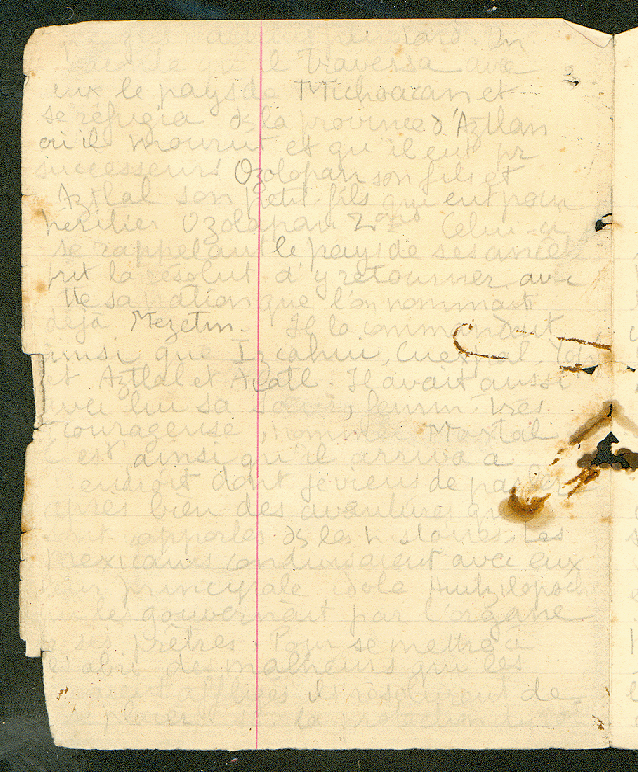 raconte qu'il traversa avec
eux le pays de Michoacan et
se réfugia ds la province d'Aztlan
où il mourut et qu'il eut pr
successeurs Ozolopan son fils et
Aztlal son petit fils qui eut pour
héritier Ozolapan 2nd Celui-ci
se rappelant le pays de ses ancê
prit la résolut d'y retourner avec
tte sa nation que l'on nommait
déjà Mezetin. Il la commandait
ainsi que Izcahui, Cuexpal,
et Aztlal et Acatl. Il avait aussi
avec lui sa soeur, femme très
courageuse nommée Maxtal
C'est ainsi qu'il arriva à
l'endroit dont je viens de parler
après bien des aventures
rapportées ds les histoires. Les
Mexicains conduisaient avec eux
leur principale idole Huitzilopoch
qui le gouvernait par l'organe
de ses prêtres. Pour se mettre à
l'abri des malheurs qui les
avaient affligés ils résolurent de
se placer sous la protection